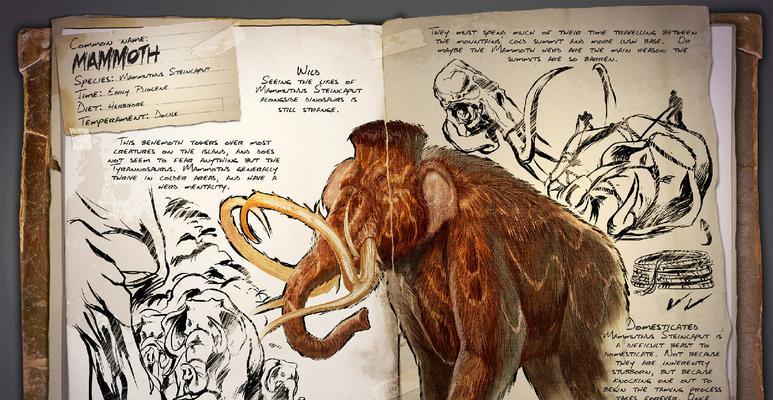 Common name:
MAMMOTH
Species: Mammuthus Steincaput
Time: Early Pliocene
Diet: Herbivore
Temperament: Docile
Wild
Seeing the likes of
Mammuthus Steincaput
alongside dinosaurs is
still strange.
This behemoth towers over most
creatures on the island, and does
not seem to fear anything but the
Tyrannosaurus. Mammoths generally
thrive in colder areas, and have a
herd mentality.
They must spend much of their time travelling between
the mountains' cold summit and more lush base. Or
maybe the Mammoth herd are the main reason the
summits are so barren.
Domesticated
Mammuthus Steincaput is
a difficult beast to
domesticate. Not because
they are inherently
stubborn, but because
knocking one out to
begin the taming process
takes forever. Once